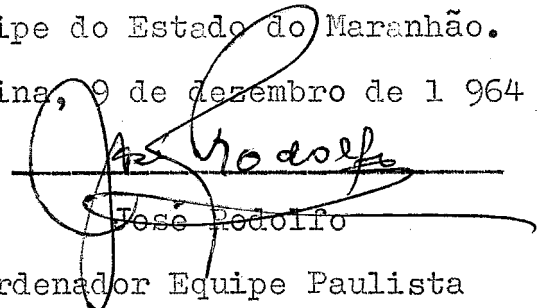 ipe do Estado do Maranhão.
ina, 9 de dezembro de 1 964
José Rodolfo
José Rodolfo
rdenador Equipe Paulista